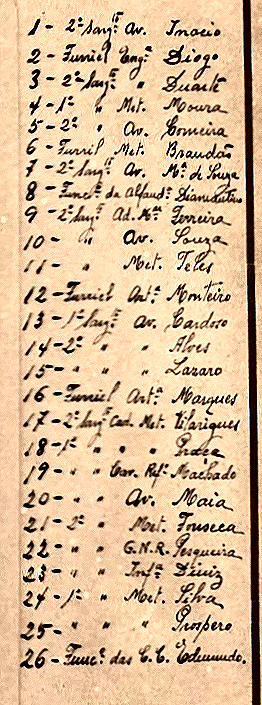 1 - 2º Sargtº Av. Inacio
2 - Furriel Engª Diogo
3 - 2º Sargtº " Duarte
4 - 1º " Met. Moura
5 - 2º " Av. Comeira
6 - Furril Met. Brandão
7 - 2º Sargtº Av. Mª de Souza
8 - Funcº da Alfandª
9 - 2º Sargtº Ad. Mª Ferreira
10 - " Av. Souza
11 - " Met. Teles
12 - Furriel Artª Monteiro
13 - 1º Sargtº Av. Cardoso
14 - 2º " " Alves
15 - " " " Lazaro
16 - Furriel Artª Marques
17 - 2º Sargtº Cad. Met. Vilarigues
18 - 1º " " "
19 - " " Cav. Refº Machado
20 - " " Av. Maia
21 - 2º " Met. Fonseca
22 - " " G.N.R. Pesqueira
23 - " " Infª Diniz
24 - 1º " Met. Silva
25 - " " " Prospero
26 - Funcº das C.C. Edmundo.